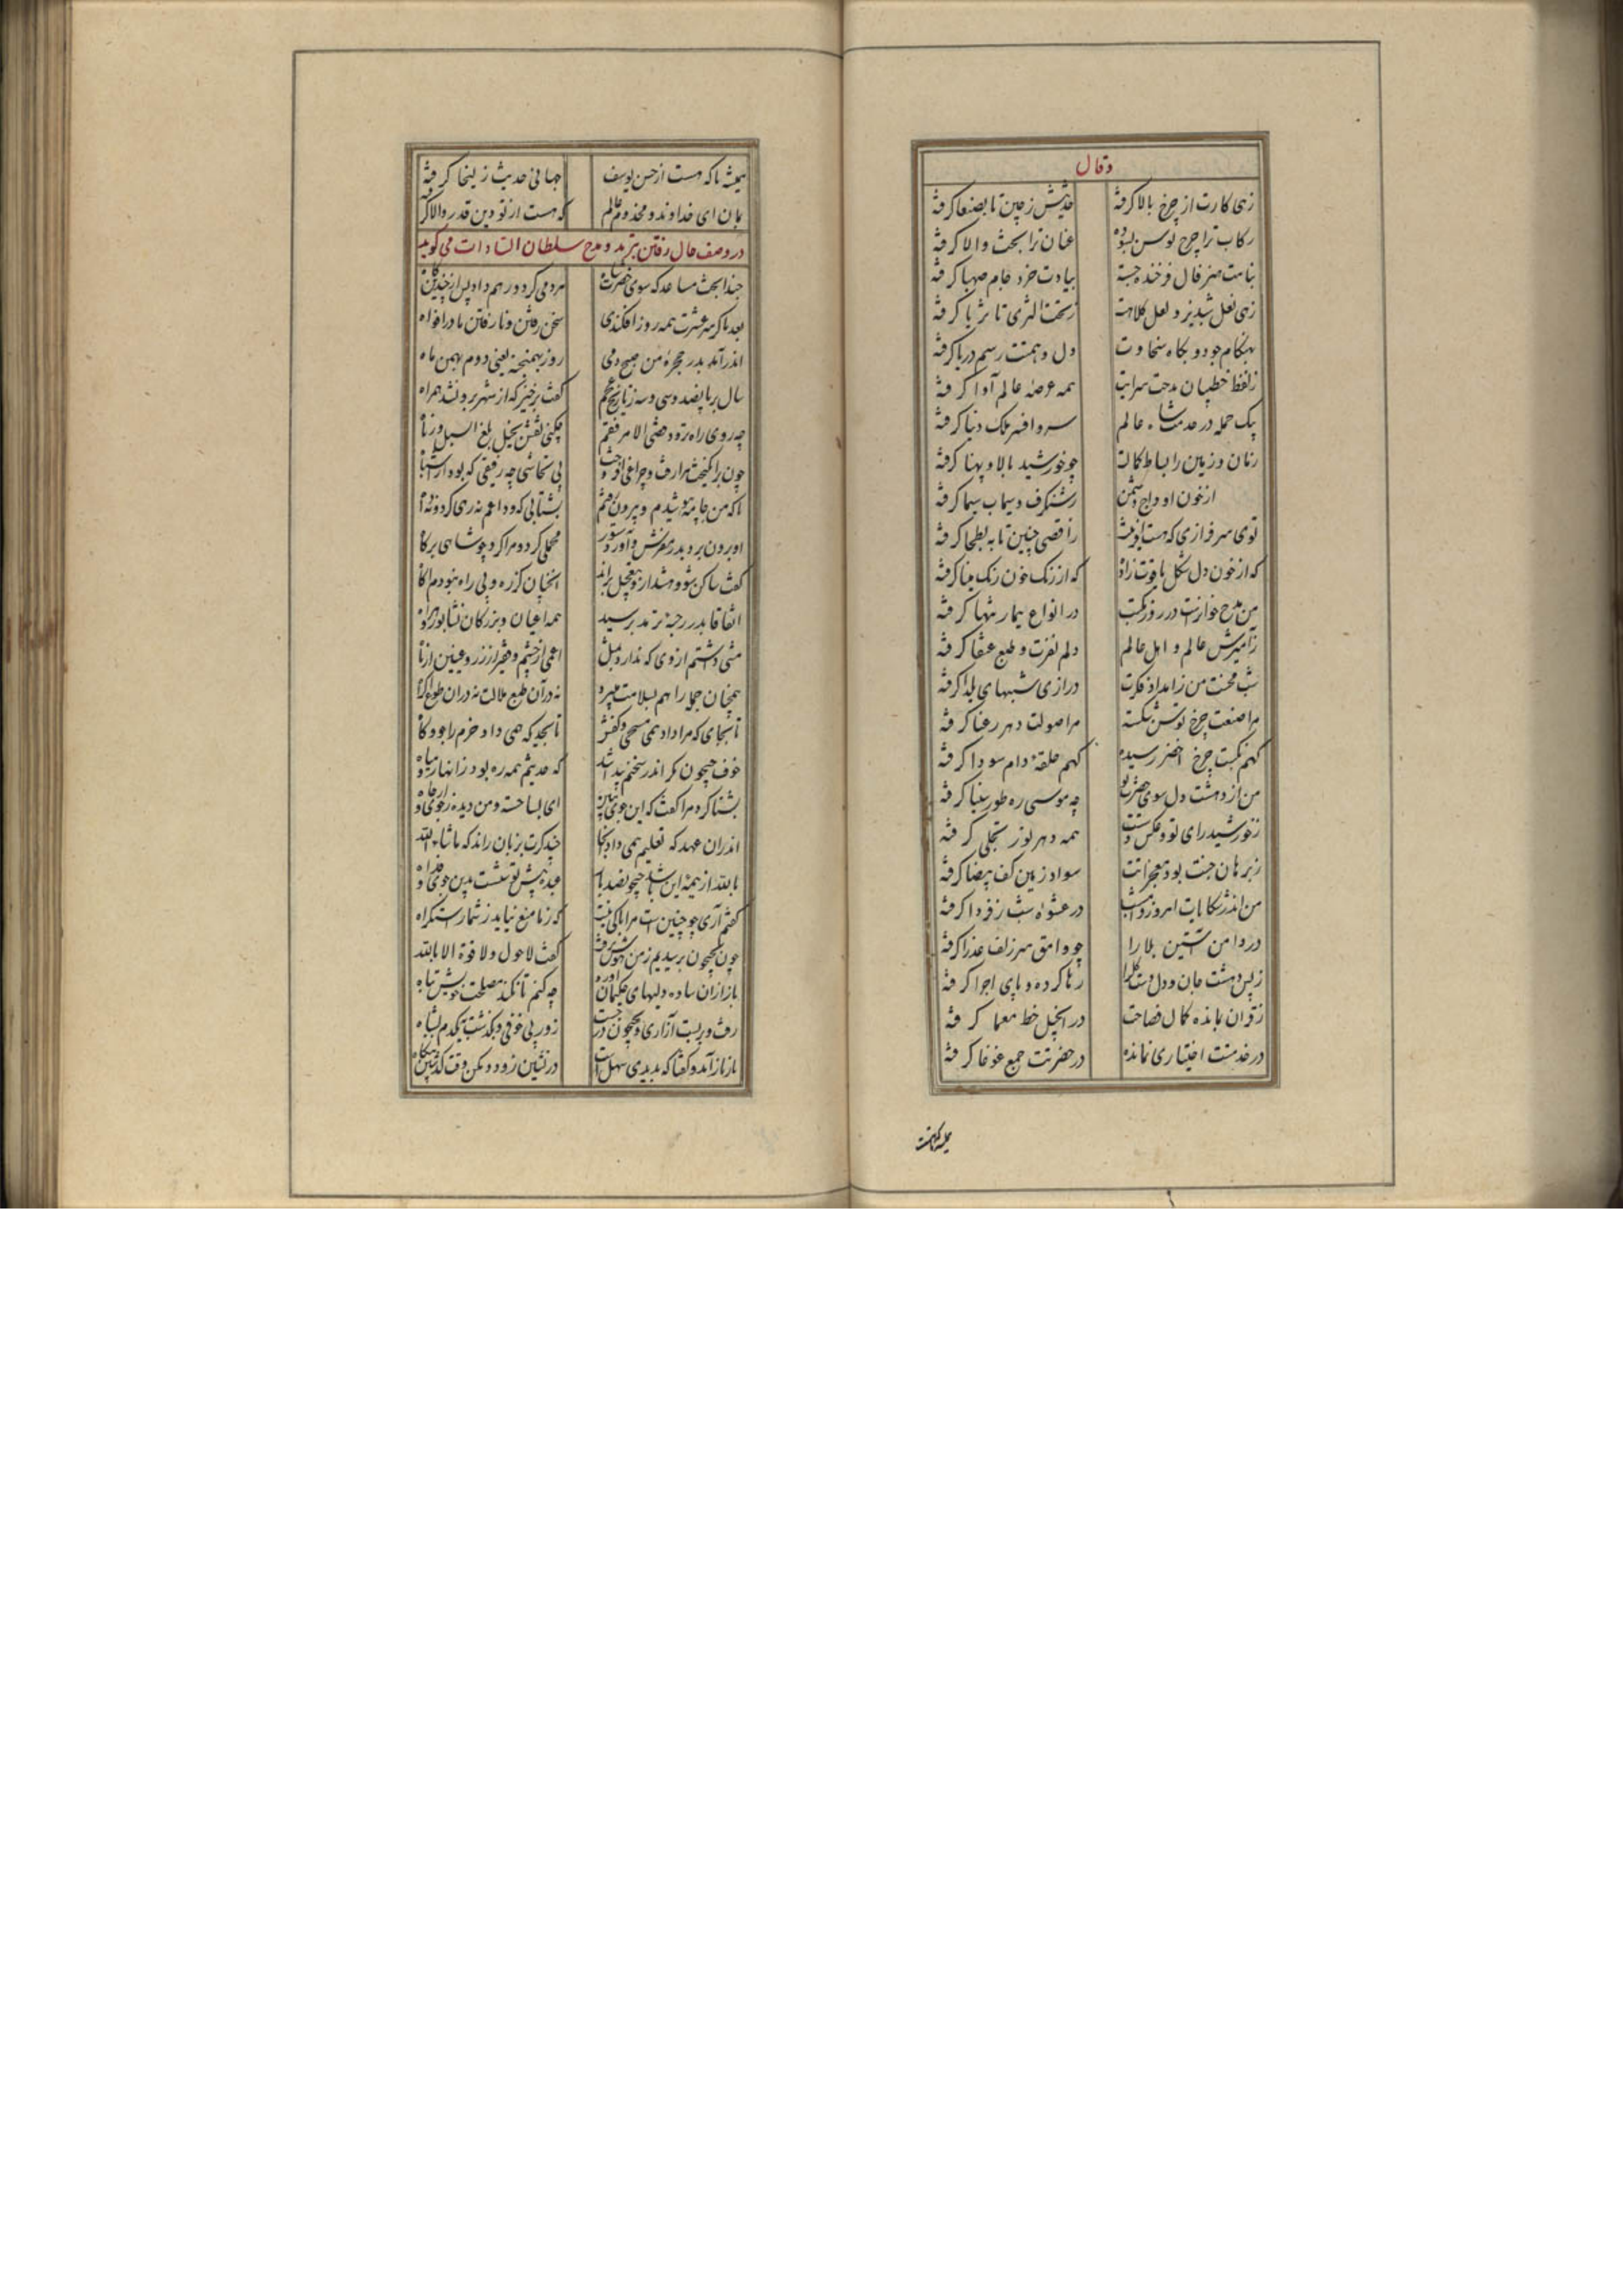 وقال
زهی کارت از چرخ بالا گرفته حدیثش ز چین تا بصنعا گرفته
رکاب ترا چرخ توسن بسوده عنان ترا بخت والا گرفته
بنامت هنر فال فرخنده جسته بیادت خرد جام صهبا گرفته
زهی نعل شبدیز و لعل کلاهت ز تحت الثری تا ثریا گرفته
بهنگام جود و بگاه سخاوت دل و همتت رسم دریا گرفته
ز لفظ خطیبان مدحت سرایت همه عرصهٔ عالم آوا گرفته
یک حمله در خدمت شاه عالم سر و افسر ملک دنیا گرفته
زمان و زمین را بساط کمالت چو خورشید بالا و پهنا گرفته
از خون اوداج دشمن ز شنگرف و سیماب سیما گرفته
توی سرفرازی که هست آفرینت ز اقصی چین تا به بطحا گرفته
که از خون دل شکل یاقوت زاده که از رنگ خون رنگ مینا گرفته
من مدح خوانت در روز نکبت در انواع تیمار تنها گرفته
ز آمیزش عالم و اهل عالم دلم نفرت و طبع عنقا گرفته
شب محنت من ز امداد فکرت درازی شبهای یلدا گرفته
مرا صنعت چرخ توسن شکسته مرا صولت دهر رعنا گرفته
گهم نکبت چرخ اخضر رسیده گهم حلقهٔ دام سودا گرفته
من از دهشت دل سوی حضرت تو چه موسی ره طور سینا گرفته
ز خورشید رای تو و عکس دستت همه دهر نور تجلی گرفته
ز برهان جنت بود معجزاتت سواد زمین کف بیضا گرفته
من اندر شکایات امروز و امشب در عشوهٔ شب ز فردا گرفته
در دامن آستین بلا را چو وامق سر زلف عذرا گرفته
ز بس دهشت جان و دل رها کرده و پای اجوا گرفته
ز قرآن بمانده کمال فصاحت در انجیل خط معما گرفته
در خدمتت اختیاری نمانده در حضرتت جمع غوغا گرفته
همیشه تا که هست از حسن یوسف جهانی حدیث زلیخا گرفته
بمان ای خداوند و مخدوم عالم که هست از تو دین قدر والا گرفته
در وصف حال رفتن بترمد و مدح سلطان السادات می گوید
حبذا بخت مساعد که سوی حضرت شاه مردمی کرد و رهم داد پس از چندین گاه
بعد ما کز سر عشرت همه روز افکندی سخن رفتن و نا رفتن ما در افواه
اندر آمد بدر حجرهٔ من صبح دمی روز بهمنجنه یعنی دوم بهمن ماه
سال بر پانصد و سی و سه ز تاریخ عجم گفت برخیز که از شهر برون شد همراه
چه روی راه تردد قضی الامر فقم چکنی نقش تخیل بلغ السیل زباه
چون برانگیخت مرا رفت و چراغی افروخت بی تحاشی چه رفیقی که بود از اشباه
تا که من جامه بپوشیدم و بیرون رفتم بشتابی که وداعم نه رهی کرد و نه داه
او برون برد بدر مفرش و آورد ستور محملی کرد و مرا کرد چو شاهی برگاه
گفت ساکن شو و هشدار و بتعجیل براند آنچنان کز ره و بی راه نبودم آگاه
اتفاقا بدر رحبهٔ ترمد برسید همه اعیان و بزرگان نشابور و هراه
منتی داشتم از وی که ندارد بمثل اعمی از چشم و فقیر از زر و عنین از باه
همچنان جمله را هم بسلامت میبرد نه در آن طبع ملالت نه دران طوع اکراه
تا بجای که مرا داد همی مسحی و کفش تا بحدیکه همی داد خرم را جو و کاه
خوف جیحون مگر اندر سخنم پیدا شد که حدیثم همه ره بود ز انهار و میاه
بشنا کرد مرا گفت که این جوی ببین ای بسا خسته و من دیده ز جوی و از چاه
اندران عهد که تعلیم همی داد مرا چند کرت بزبان راند که ماشاء الله
بالله از همه این باشد جیحون بصد بار عبده پیش تو بنشست بدین جوی و فراه
گفتم آری چو چنین است مرا باکی نیست که ز ما منع نیاید ز شمار استکراه
چون بجیحون برسیدیم ز من هوش برفت گفت لا حول ولا قوة الا بالله
باز ازان ساده دلیهای حکیمان آورد چه کنم تا نکند مصلحت خویش تباه
رفت و بربست ازاری و بجیحون در جست زو ر بی خوفی و بگذشت بیکدم بشناه
باز باز آمد و گفتا که بدیدی سهل است در نشین زود و مکن وقت گذشتن بیگاه